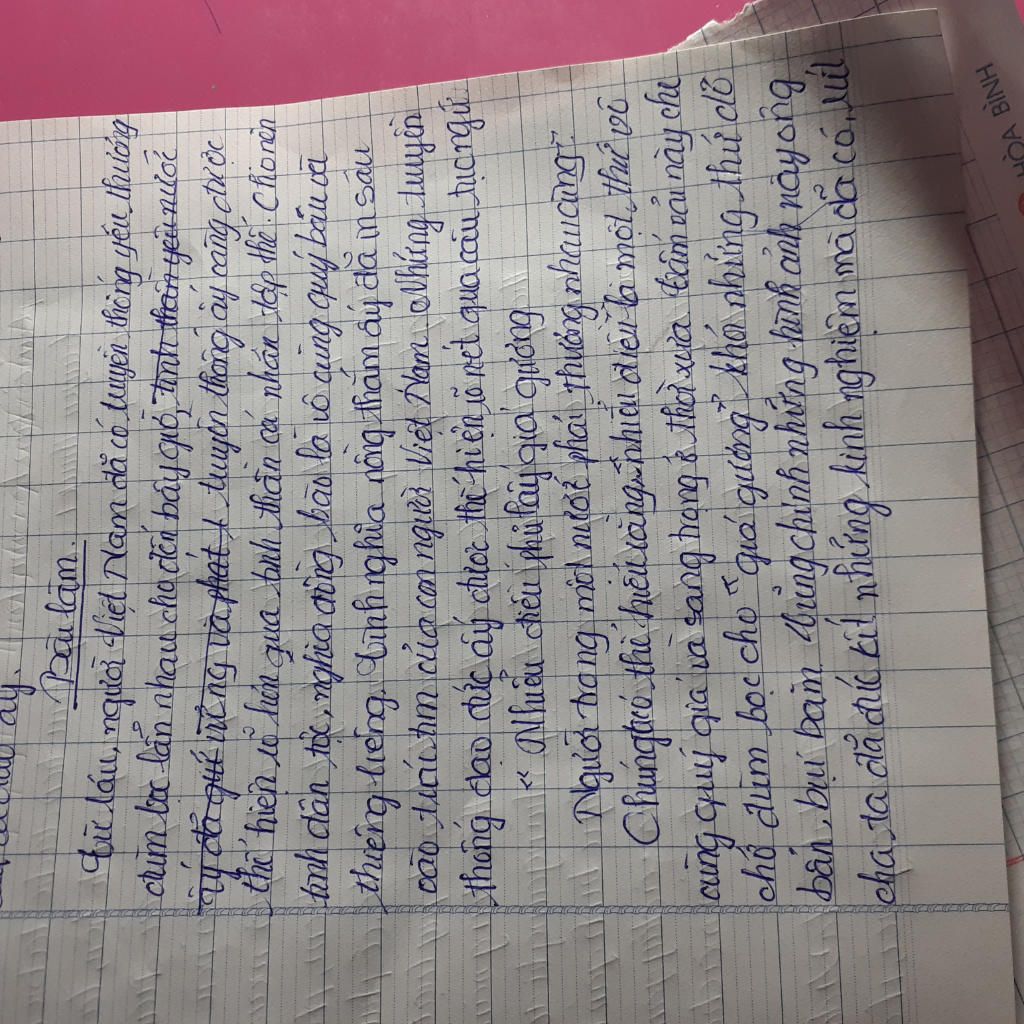 Bài làm.
Từ lâu, người Việt Nam đã có truyền thống yêu thương
đùm bọc lẫn nhau cho đến bây giờ, tinh thần yêu nước
ấy đã quý vững và phát truyền thống ấy càng được
thể hiện rõ hơn qua tinh thần cá nhân tập thể. Cho nên
tình dân tộc, nghĩa đồng bào là vô cùng quý báu và
thiêng liêng. Tình nghĩa nồng thắm ấy đã in sâu
vào trái tim của con người Việt Nam. Những truyền
thống đạo đức ấy được thể hiện rõ nét qua câu tục ngữ
" Nhiễu điều phủ lấy giá gương
Người trong một nước phải thương nhau cùng".
Chúng ta có thể hiểu rằng "nhiễu điều" là một thứ vô
cùng quý giá và sang trọng ở thời xưa. tấm nản này che
chở đùm bọc cho " giá gương" khỏi những thứ dơ
bẩn, bụi bặm. Cũng chính những hình ảnh này ông
cha ta đã đúc kết những kinh nghiệm mà đã có, rút
HÒA BÌNH